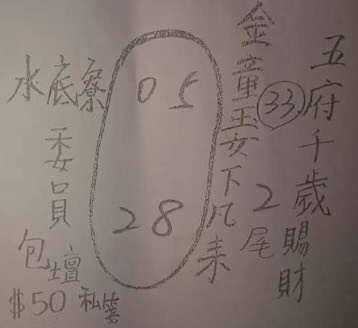 五府千歲賜財
33
2尾
金童玉女下凡來
05
28
水底寮
委員
包壇
$50 私簽